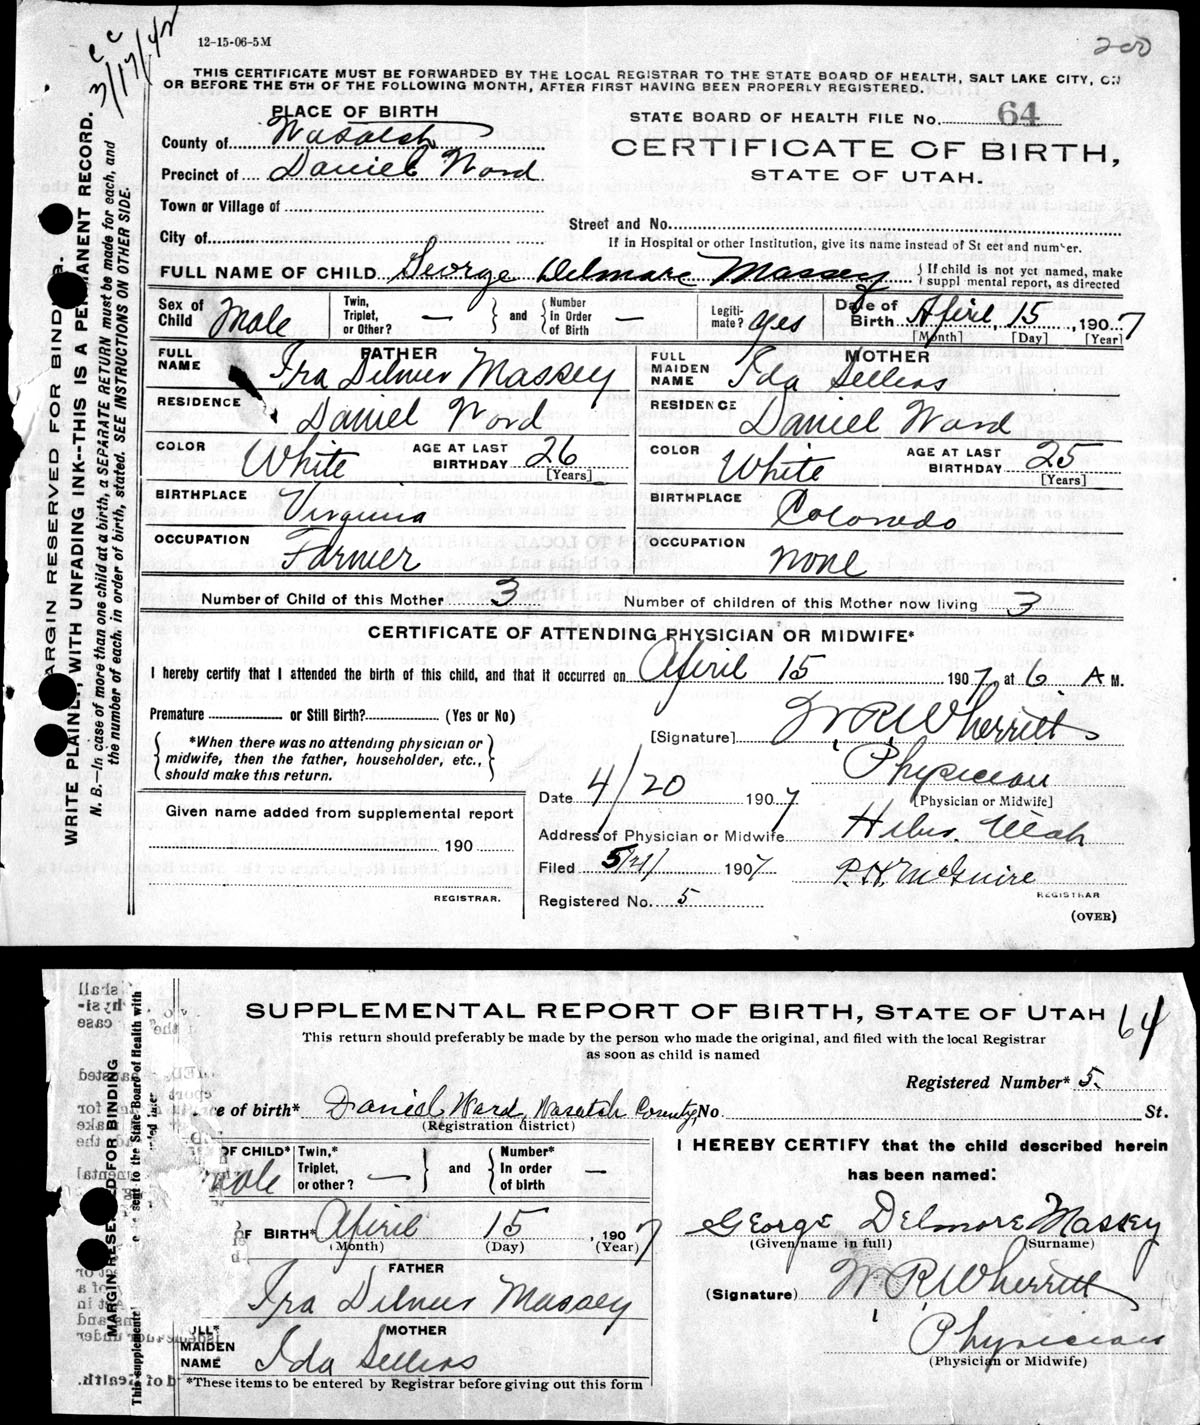 12-15-06-5M
200
cc
3/17/42
THIS CERTIFICATE MUST BE FORWARDED BY THE LOCAL REGISTRAR TO THE STATE BOARD OF HEALTH, SALT LAKE CITY, ON
OR BEFORE THE 5TH OF THE FOLLOWING MONTH, AFTER FIRST HAVING BEEN PROPERLY REGISTERED.
PLACE OF BIRTH
County of Wasatch
Precinct of Daniel Ward
Town or Village of
City of
STATE BOARD OF HEALTH FILE No. 64
CERTIFICATE OF BIRTH,
STATE OF UTAH.
Street and No.
If in Hospital or other Institution, give its name instead of St eet and num er.
FULL NAME OF CHILD George Delmare Massey
If child is not yet named, make
suppl mental report, as directed
Sex of Child Male
Twin, Triplet, or Other? —
and
Number in Order of Birth —
Legiti-mate? yes
Date of Birth April, 15, 1907
[Month] [Day] [Year]
FATHER
FULL NAME Ira Dilmus Massey
RESIDENCE Daniel Ward
COLOR White
AGE AT LAST BIRTHDAY 26
[Years]
BIRTHPLACE Virginia
OCCUPATION Farmer
MOTHER
FULL MAIDEN NAME Ida Sellers
RESIDENCE Daniel Ward
COLOR White
AGE AT LAST BIRTHDAY 25
[Years]
BIRTHPLACE Colorado
OCCUPATION None
Number of Child of this Mother 3
Number of children of this Mother now living 3
CERTIFICATE OF ATTENDING PHYSICIAN OR MIDWIFE*
I hereby certify that I attended the birth of this child, and that it occurred on April 15 1907, at 6 A M.
Premature or Still Birth? (Yes or No)
*When there was no attending physician or
midwife, then the father, householder, etc.,
should make this return.
[Signature] W R Wherritt
Physician
[Physician or Midwife]
Date 4/20 1907
Address of Physician or Midwife Heber, Utah
Filed 5/21/ 1907
P. H. McGuire
REGISTRAR
Registered No. 5
(OVER)
Given name added from supplemental report
190
REGISTRAR.
MARGIN RESERVED FOR BINDING.
WRITE PLAINLY, WITH UNFADING INK--THIS IS A PERMANENT RECORD.
N. B.—In case of more than one child at a birth, a SEPARATE RETURN must be made for each, and
the number of each, in order of birth, stated. SEE INSTRUCTIONS ON OTHER SIDE.
SUPPLEMENTAL REPORT OF BIRTH, STATE OF UTAH
64
This return should preferably be made by the person who made the original, and filed with the local Registrar
as soon as child is named
Registered Number* 5.
e of birth* Daniel Ward, Wasatch County, No. St.
(Registration district)
OF CHILD* Male
Twin,* Triplet, or other? —
and
Number* In order of birth —
OF BIRTH* April 15, 1907
(Month) (Day) (Year)
FATHER
Ira Dilmus Massey
MOTHER
ULL* MAIDEN NAME Ida Sellers
*These items to be entered by Registrar before giving out this form
I HEREBY CERTIFY that the child described herein
has been named:
George Delmore Massey
(Given name in full) (Surname)
(Signature) W R Wherritt
Physician
(Physician or Midwife)
MARGIN RESERVED FOR BINDING